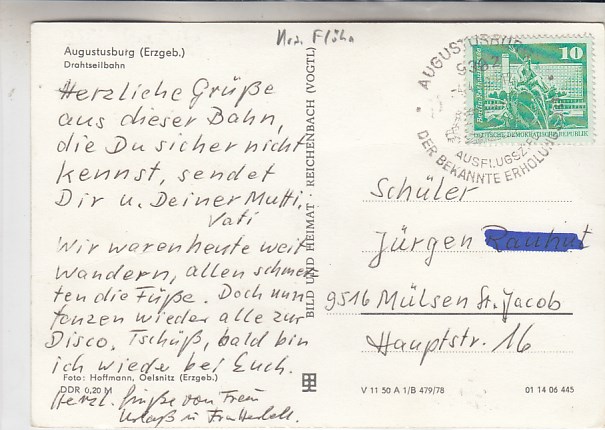 Augustusburg (Erzgeb.)
Drahtseilbahn
Herzliche Grüße
aus dieser Bahn,
die Du sicher nicht
kennst, sendet
Dir u. Deiner Mutti,
Vati
Wir waren heute weit
wandern, allen schmer
ten die Füße. Doch nun
tanzen wieder alle zur
Disco. Tschüß, bald bin
ich wieder bei Euch.
Foto: Hoffmann, Oelsnitz (Erzgeb.)
DDR 0,20 M
Herzl. Grüße von
Urlaub u.
Flöha
BILD UND HEIMAT · REICHENBACH (VOGTL)
V 11 50 A 1/B 479/78
01 14 06 445
AUGUSTUSBURG
DER BEKANNTE ERHOLUNGS
AUSFLUGSZ
10
DEUTSCHE DEMOKRATISCHE REPUBLIK
Schüler
Jürgen
9516 Mülsen St. Jacob
Hauptstr. 16